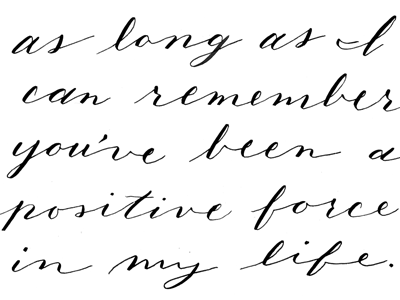 as long as I
can remember
you've been a
positive force
in my life.